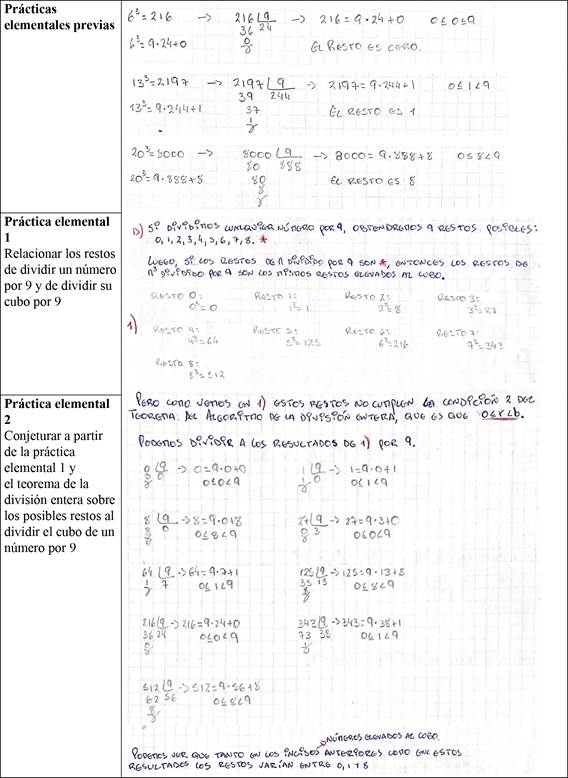 Prácticas
elementales previas
6³=216 → 216 ⌊9 → 216=9·24+0 0≤0≤9
36 24
6³=9·24+0 0 EL RESTO ES CERO.
13³=2197 → 2197 ⌊9 → 2197=9·244+1 0≤1<9
39 244
13³=9·244+1 37 EL RESTO ES 1
1
20³=8000 → 8000 ⌊9 → 8000=9·888+8 0≤8<9
80 888
20³=9·888+8 80 EL RESTO ES 8
8
Práctica elemental
1
Relacionar los restos
de dividir un número
por 9 y de dividir su
cubo por 9
D) SI DIVIDIMOS CUALQUIER NÚMERO POR 9, OBTENDREMOS 9 RESTOS POSIBLES:
0, 1, 2, 3, 4, 5, 6, 7, 8. *
LUEGO, SI LOS RESTOS DE n DIVIDIDO POR 9 SON *, ENTONCES LOS RESTOS DE
n³ DIVIDIDO POR 9 SON LOS MISMOS RESTOS ELEVADOS AL CUBO.
RESTO 0: RESTO 1: RESTO 2: RESTO 3:
0³=0 1³=1 2³=8 3³=27
1) RESTO 4: RESTO 5: RESTO 6: RESTO 7:
4³=64 5³=125 6³=216 7³=343
RESTO 8:
8³=512
Práctica elemental
2
Conjeturar a partir
de la práctica
elemental 1 y
el teorema de la
división entera sobre
los posibles restos al
dividir el cubo de un
número por 9
PERO COMO VEMOS EN 1) ESTOS RESTOS NO CUMPLEN LA CONDICIÓN 2 DEL
TEOREMA DEL ALGORITMO DE LA DIVISIÓN ENTERA, QUE ES QUE 0≤r<b.
PODEMOS DIVIDIR A LOS RESULTADOS DE 1) POR 9.
0 ⌊9 → 0=9·0+0 1 ⌊9 → 1=9·0+1
0 0 0≤0<9 1 0 0≤1<9
8 ⌊9 → 8=9·0+8 27 ⌊9 → 27=9·3+0
8 0 0≤8<9 0 3 0≤0<9
64 ⌊9 → 64=9·7+1 125 ⌊9 → 125=9·13+8
1 7 0≤1<9 35 13 0≤8<9
8
216 ⌊9 → 216=9·24+0 343 ⌊9 → 343=9·38+1
36 24 0≤0<9 73 38 0≤1<9
0 1
512 ⌊9 → 512=9·56+8
62 56 0≤8<9
8
NÚMEROS ELEVADOS AL CUBO.
PODEMOS VER QUE TANTO EN LOS INCISOS ANTERIORES COMO EN ESTOS
RESULTADOS LOS RESTOS VARÍAN ENTRE 0, 1 Y 8